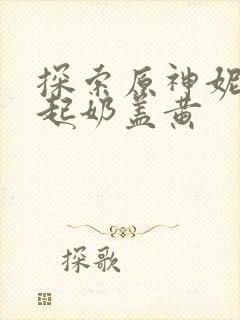 探索原神妮
起奶盖黄
探歌